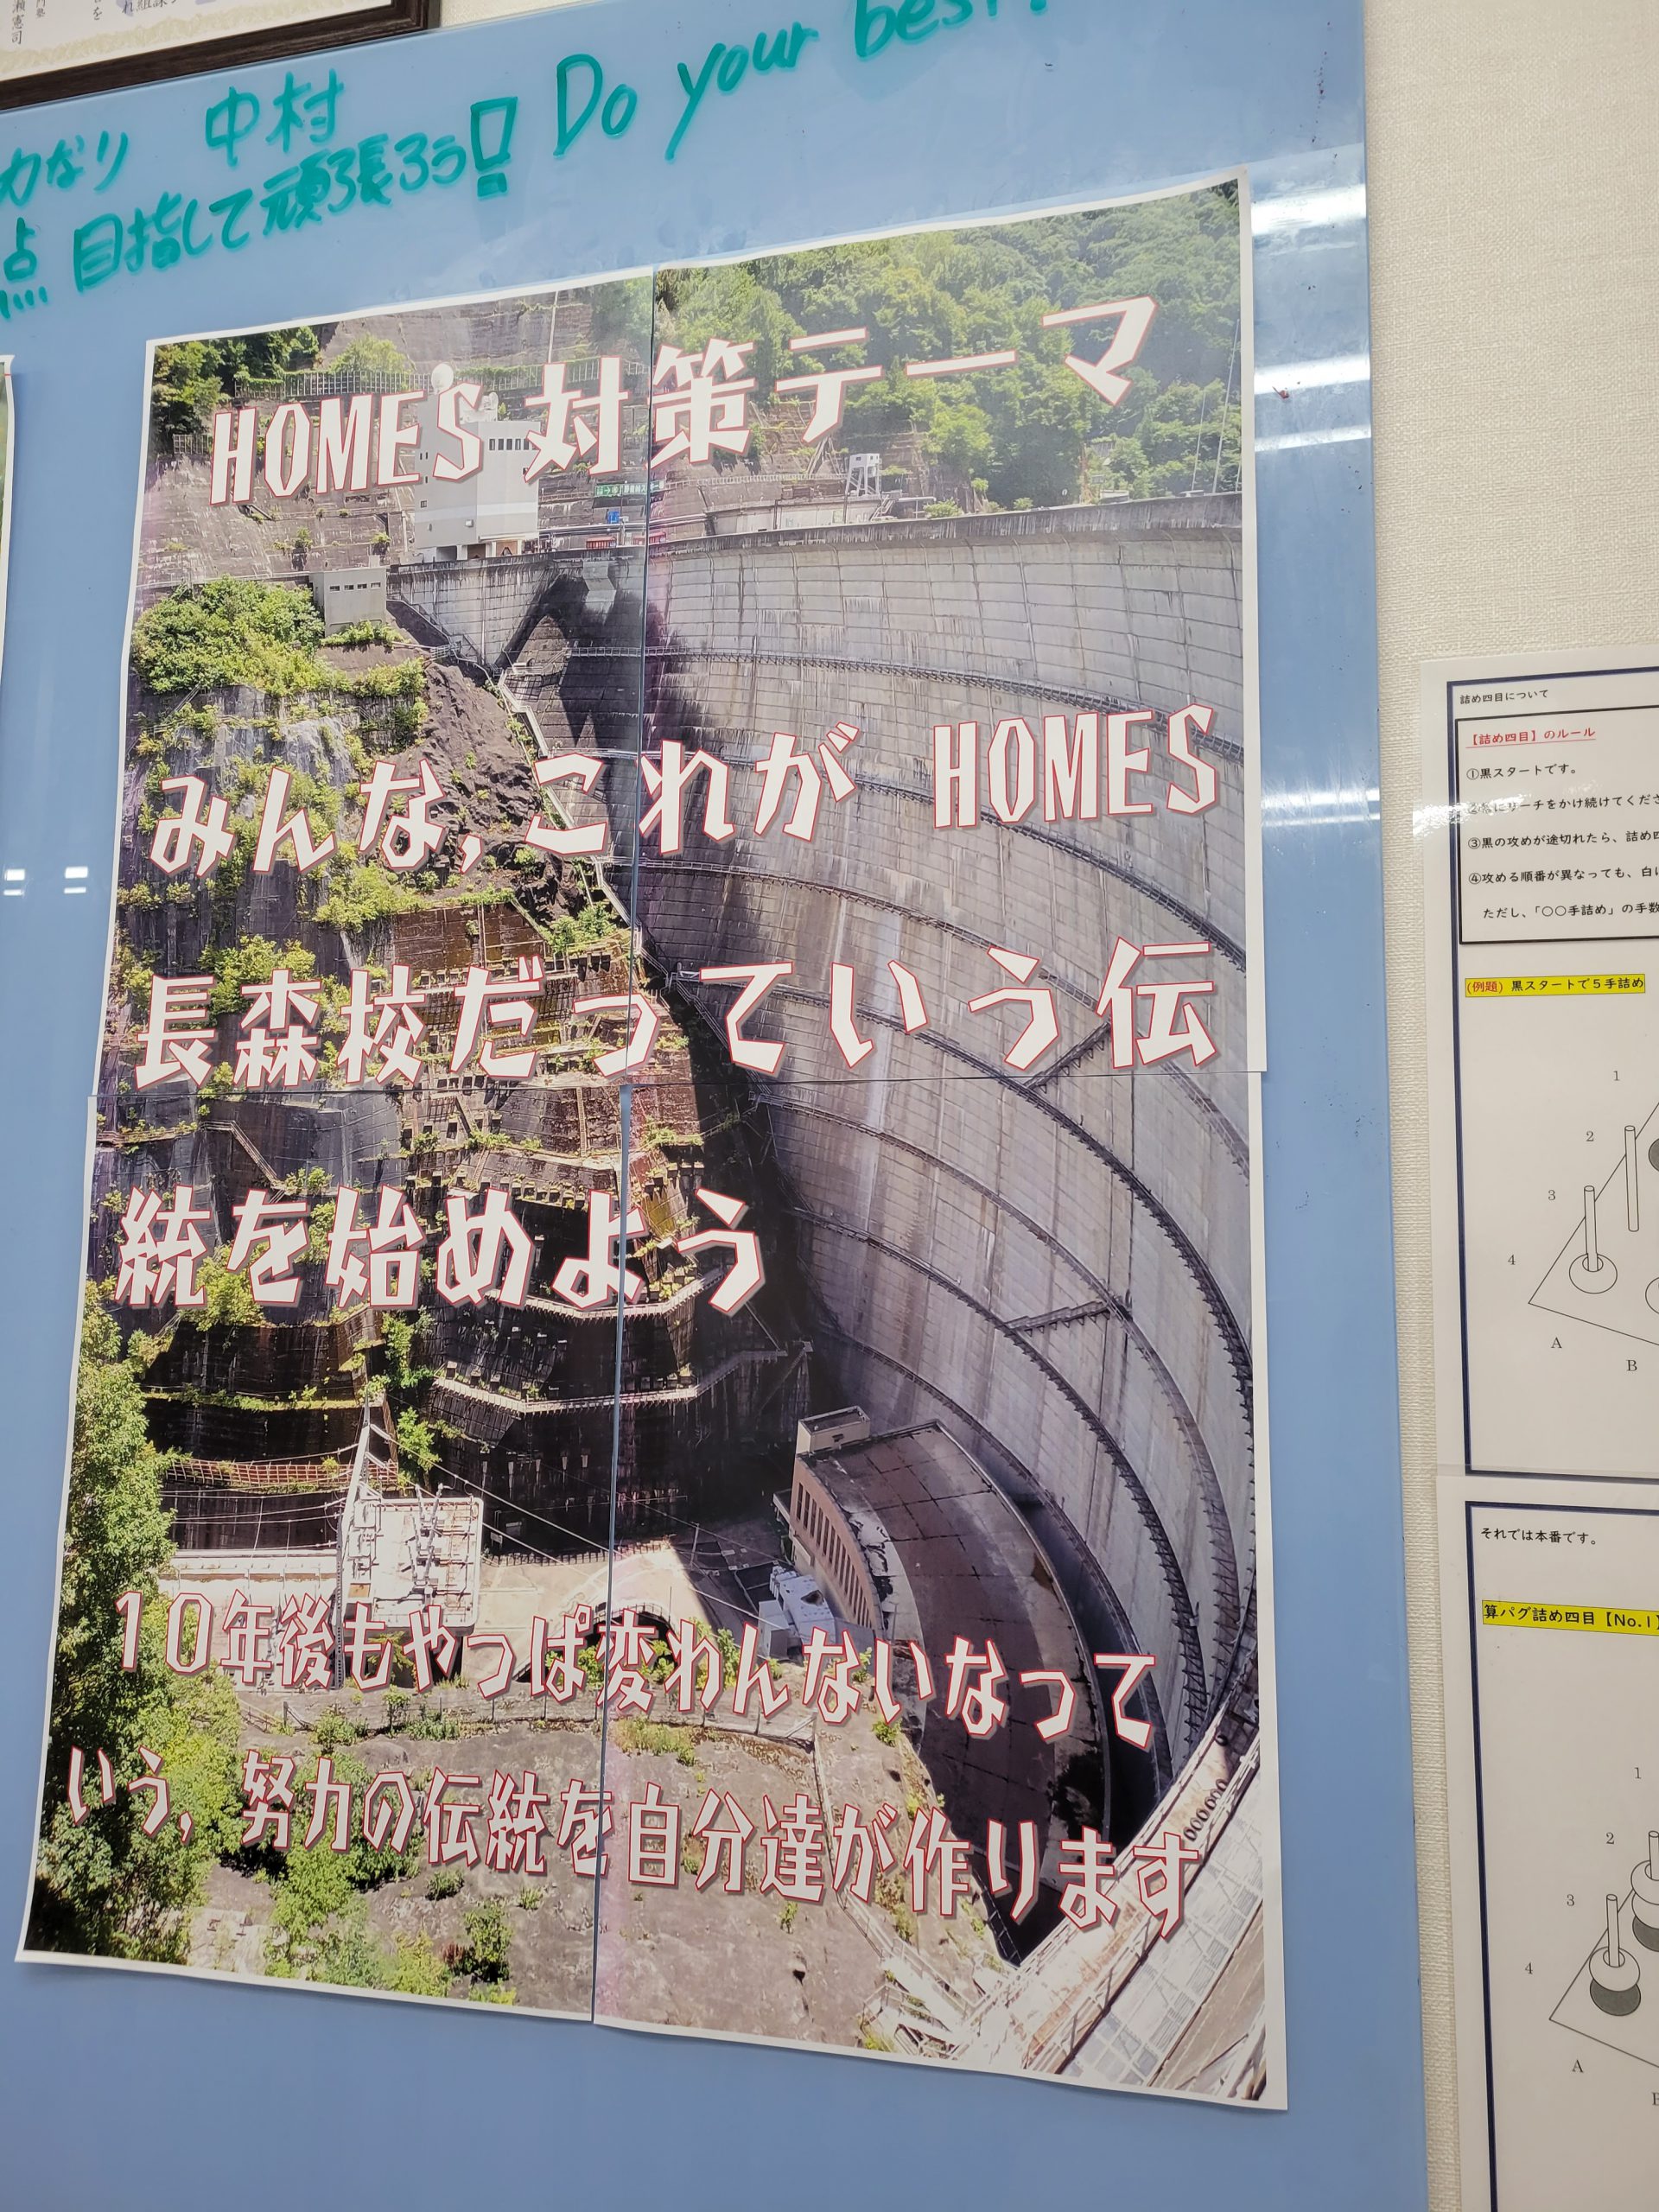 力なり 中村
点 目指して頑張ろう! Do your best!
HOMES 対策テーマ
みんな,これが HOMES
長森校だっていう伝
統を始めよう
10年後もやっぱ変わんないなって
いう,努力の伝統を自分達が作ります
詰め四目について
【詰め四目】のルール
①黒スタートです。
リーチをかけ続けてくださ
③黒の攻めが途切れたら、詰め四
④攻める順番が異なっても、白に
ただし、「○○手詰め」の手数
(例題) 黒スタートで5手詰め
1
2
3
4
A
B
それでは本番です。
算パグ詰め四目【No.1】
1
2
3
4
A
B